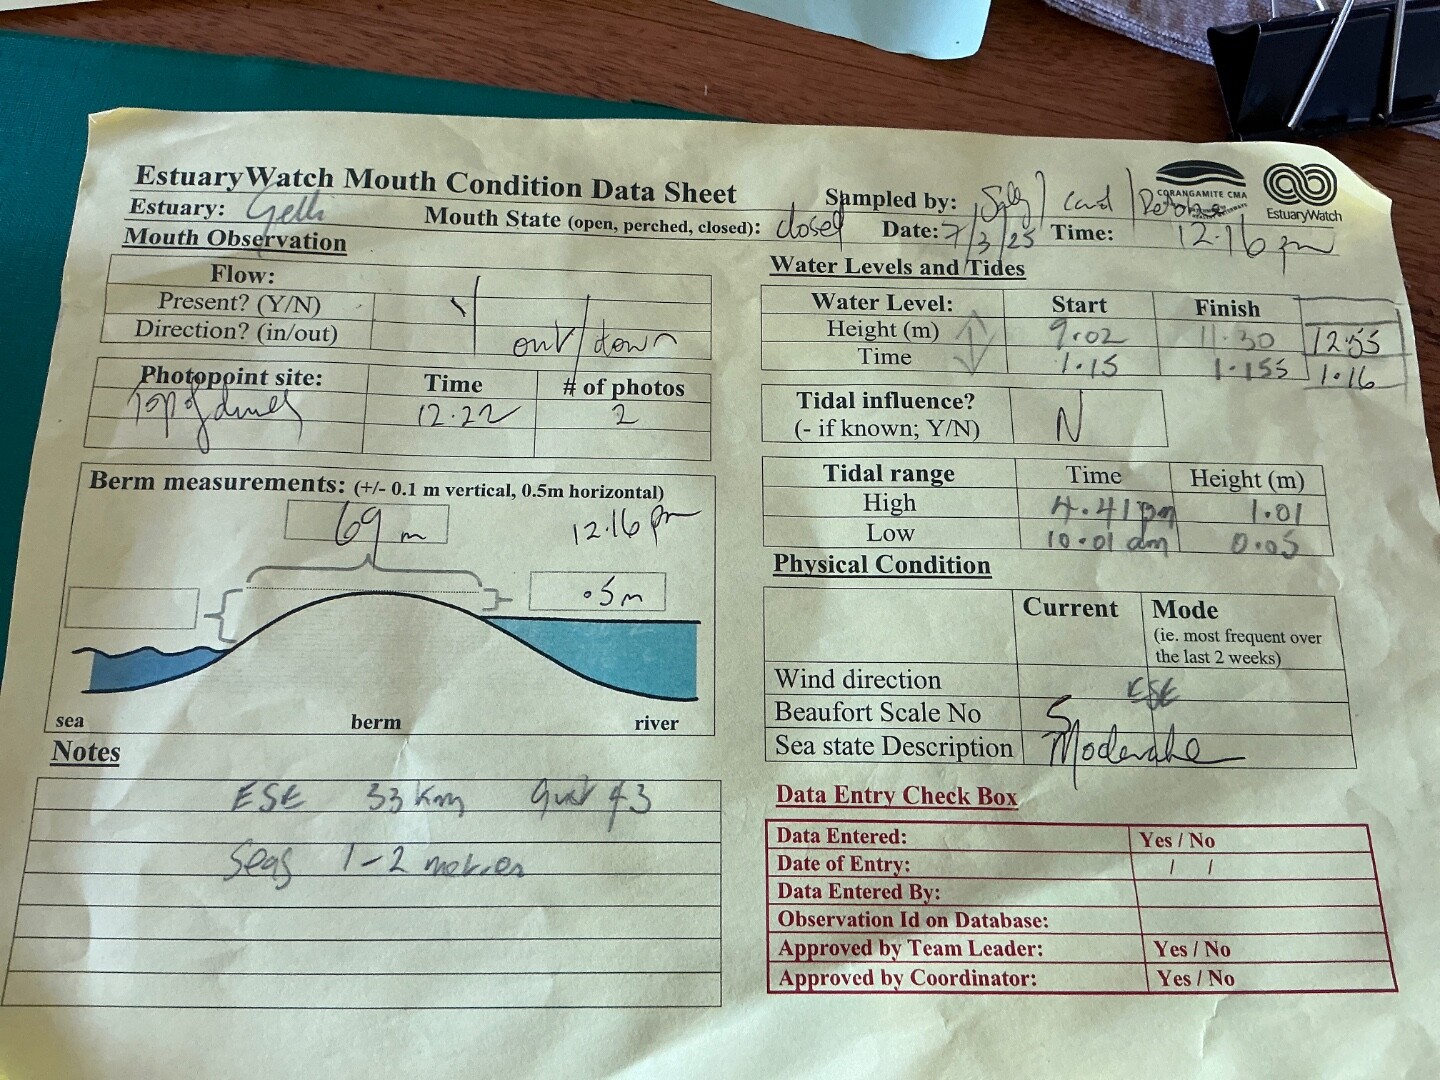 EstuaryWatch Mouth Condition Data Sheet
Sampled by: Sally
CORANGAMITE CMA
EstuaryWatch
Estuary: Gelli
Mouth State (open, perched, closed): closed
Date: 7/3/25 Time: 12.16 pm
Mouth Observation
Flow:
Present? (Y/N)
Direction? (in/out) out/down
Photopoint site: Time # of photos
Top of dunes 12.22 2
Berm measurements: (+/- 0.1 m vertical, 0.5m horizontal)
69 m 12.16 pm
.5m
sea berm river
Notes
ESE 33 Km Gust 43
Seas 1-2 metres
Water Levels and Tides
Water Level: Start Finish
Height (m) 9.02 11.30 12.55
Time 1.15 1.155 1.16
Tidal influence? N
(- if known; Y/N)
Tidal range Time Height (m)
High 4.41pm 1.01
Low 10.01 am 0.05
Physical Condition
Current Mode
(ie. most frequent over
the last 2 weeks)
Wind direction ESE
Beaufort Scale No 5
Sea state Description Moderate
Data Entry Check Box
Data Entered: Yes / No
Date of Entry: / /
Data Entered By:
Observation Id on Database:
Approved by Team Leader: Yes / No
Approved by Coordinator: Yes / No